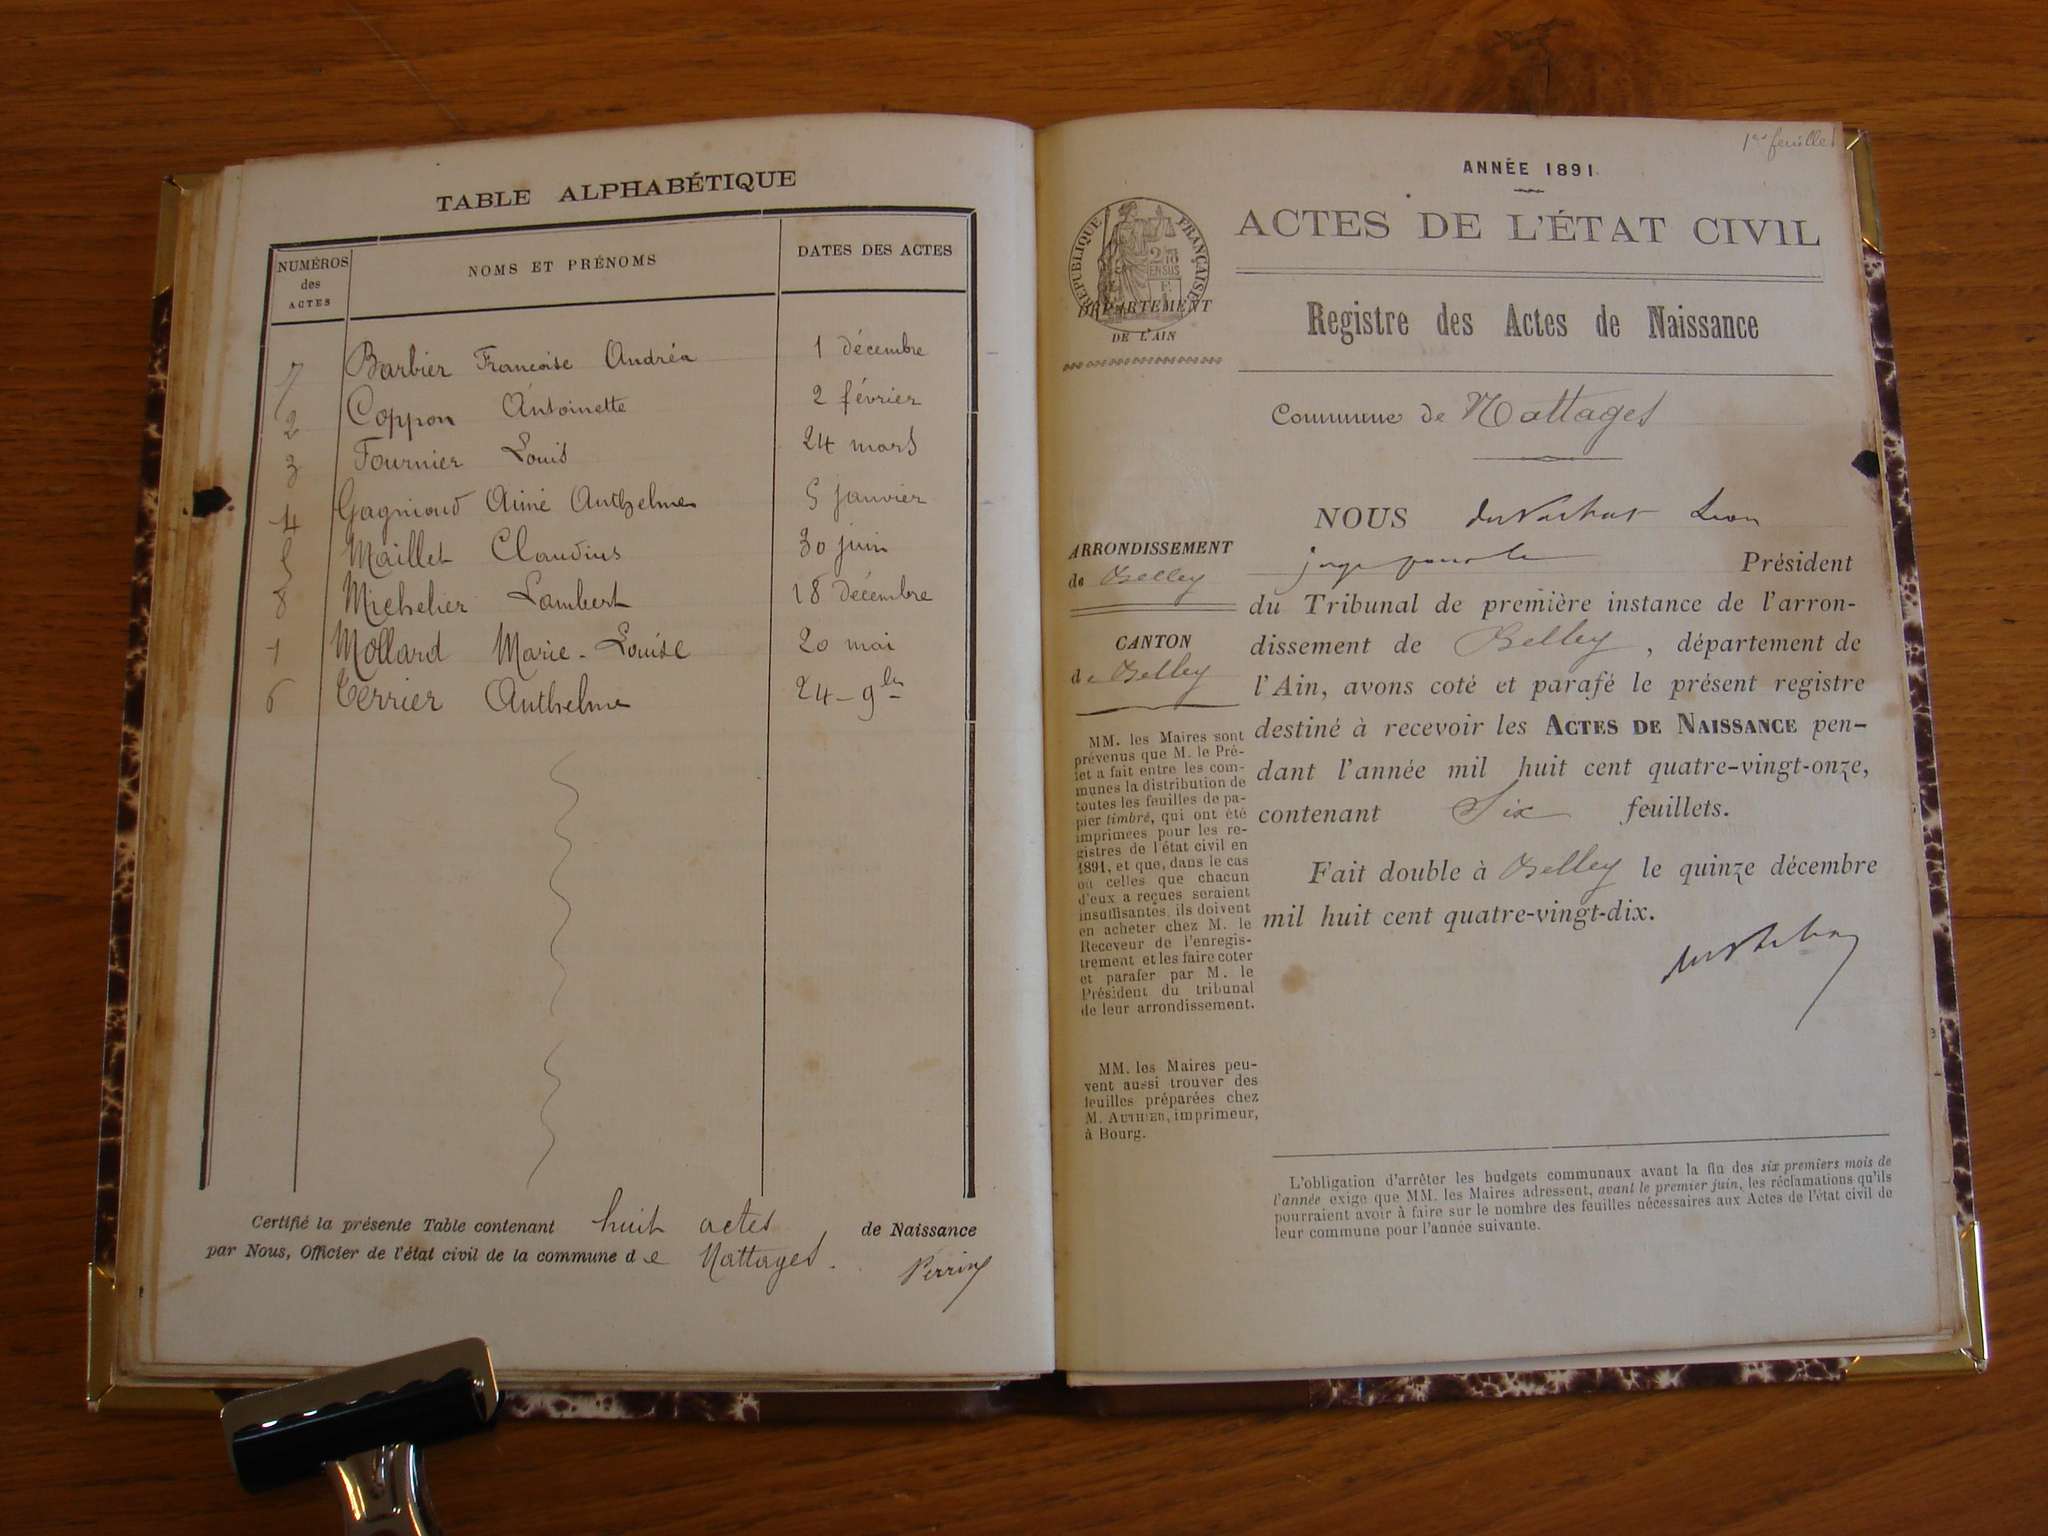 TABLE ALPHABÉTIQUE
NUMÉROS des ACTES
NOMS ET PRÉNOMS
DATES DES ACTES
7 Barbier Francoise Andréa 1 décembre
2 Coppon Antoinette 2 février
3 Fournier Louis 24 mars
Gagnioud Aimé Anthelme 5 janvier
Maillet Claudius 30 juin
8 Michelier Lambert 18 décembre
Mollard Marie-Louise 20 mai
6 Terrier Anthelme 24 - 9bre
Certifié la présente Table contenant huit actes de Naissance
par Nous, Officier de l'état civil de la commune de Nattages.
Perrin
1er feuillet
ANNÉE 1891
ACTES DE L'ÉTAT CIVIL
RÉPUBLIQUE FRANÇAISE
2/10 EN SUS
DÉPARTEMENT
DE L'AIN
Registre des Actes de Naissance
Commune de Nattages
ARRONDISSEMENT
de Belley
CANTON
de Belley
MM. les Maires sont
prévenus que M. le Pré-
fet a fait entre les com-
munes la distribution de
toutes les feuilles de pa-
pier timbré, qui ont été
imprimées pour les re-
gistres de l'état civil en
1891, et que, dans le cas
où celles que chacun
d'eux a reçues seraient
insuffisantes, ils doivent
en acheter chez M. le
Receveur de l'enregis-
trement et les faire coter
et parafer par M. le
Président du tribunal
de leur arrondissement.
MM. les Maires peu-
vent aussi trouver des
feuilles préparées chez
M. AUTHIER, imprimeur,
à Bourg.
NOUS Léon
Président
du Tribunal de première instance de l'arron-
dissement de Belley, département de
l'Ain, avons coté et parafé le présent registre
destiné à recevoir les ACTES DE NAISSANCE pen-
dant l'année mil huit cent quatre-vingt-onze,
contenant Six feuillets.
Fait double à Belley le quinze décembre
mil huit cent quatre-vingt-dix.
L'obligation d'arrêter les budgets communaux avant la fin des six premiers mois de
l'année exige que MM. les Maires adressent, avant le premier juin, les réclamations qu'ils
pourraient avoir à faire sur le nombre des feuilles nécessaires aux Actes de l'état civil de
leur commune pour l'année suivante.